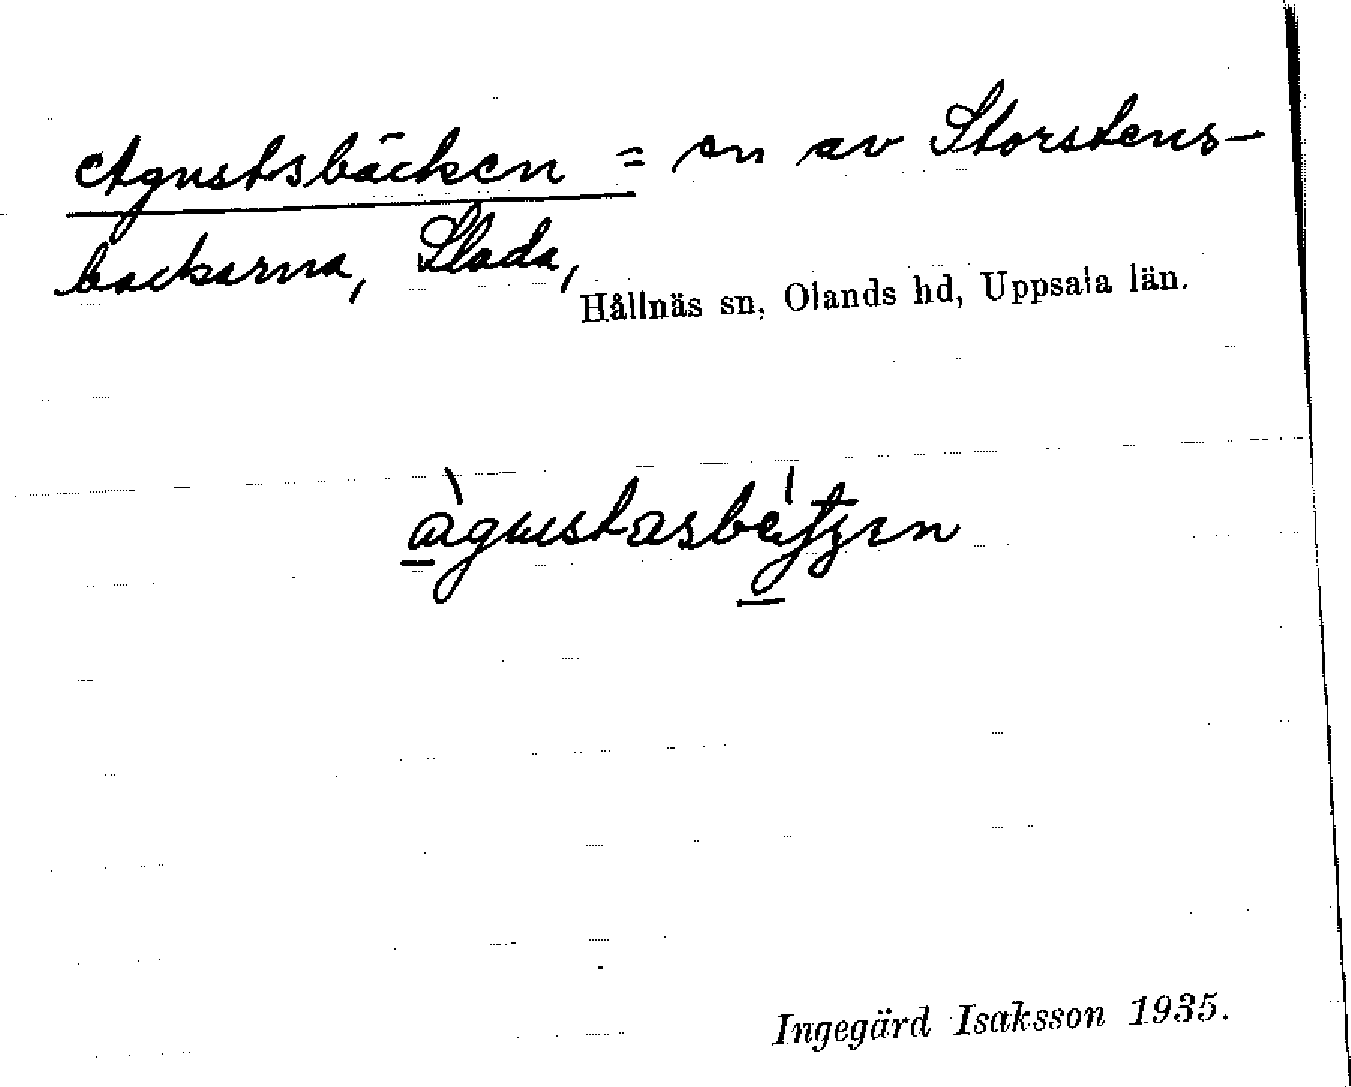 Agustsbäcken = en av Storstens-
backarna, Slada,
Hållnäs sn, Olands hd, Uppsala län.
Ingegärd Isaksson 1935.